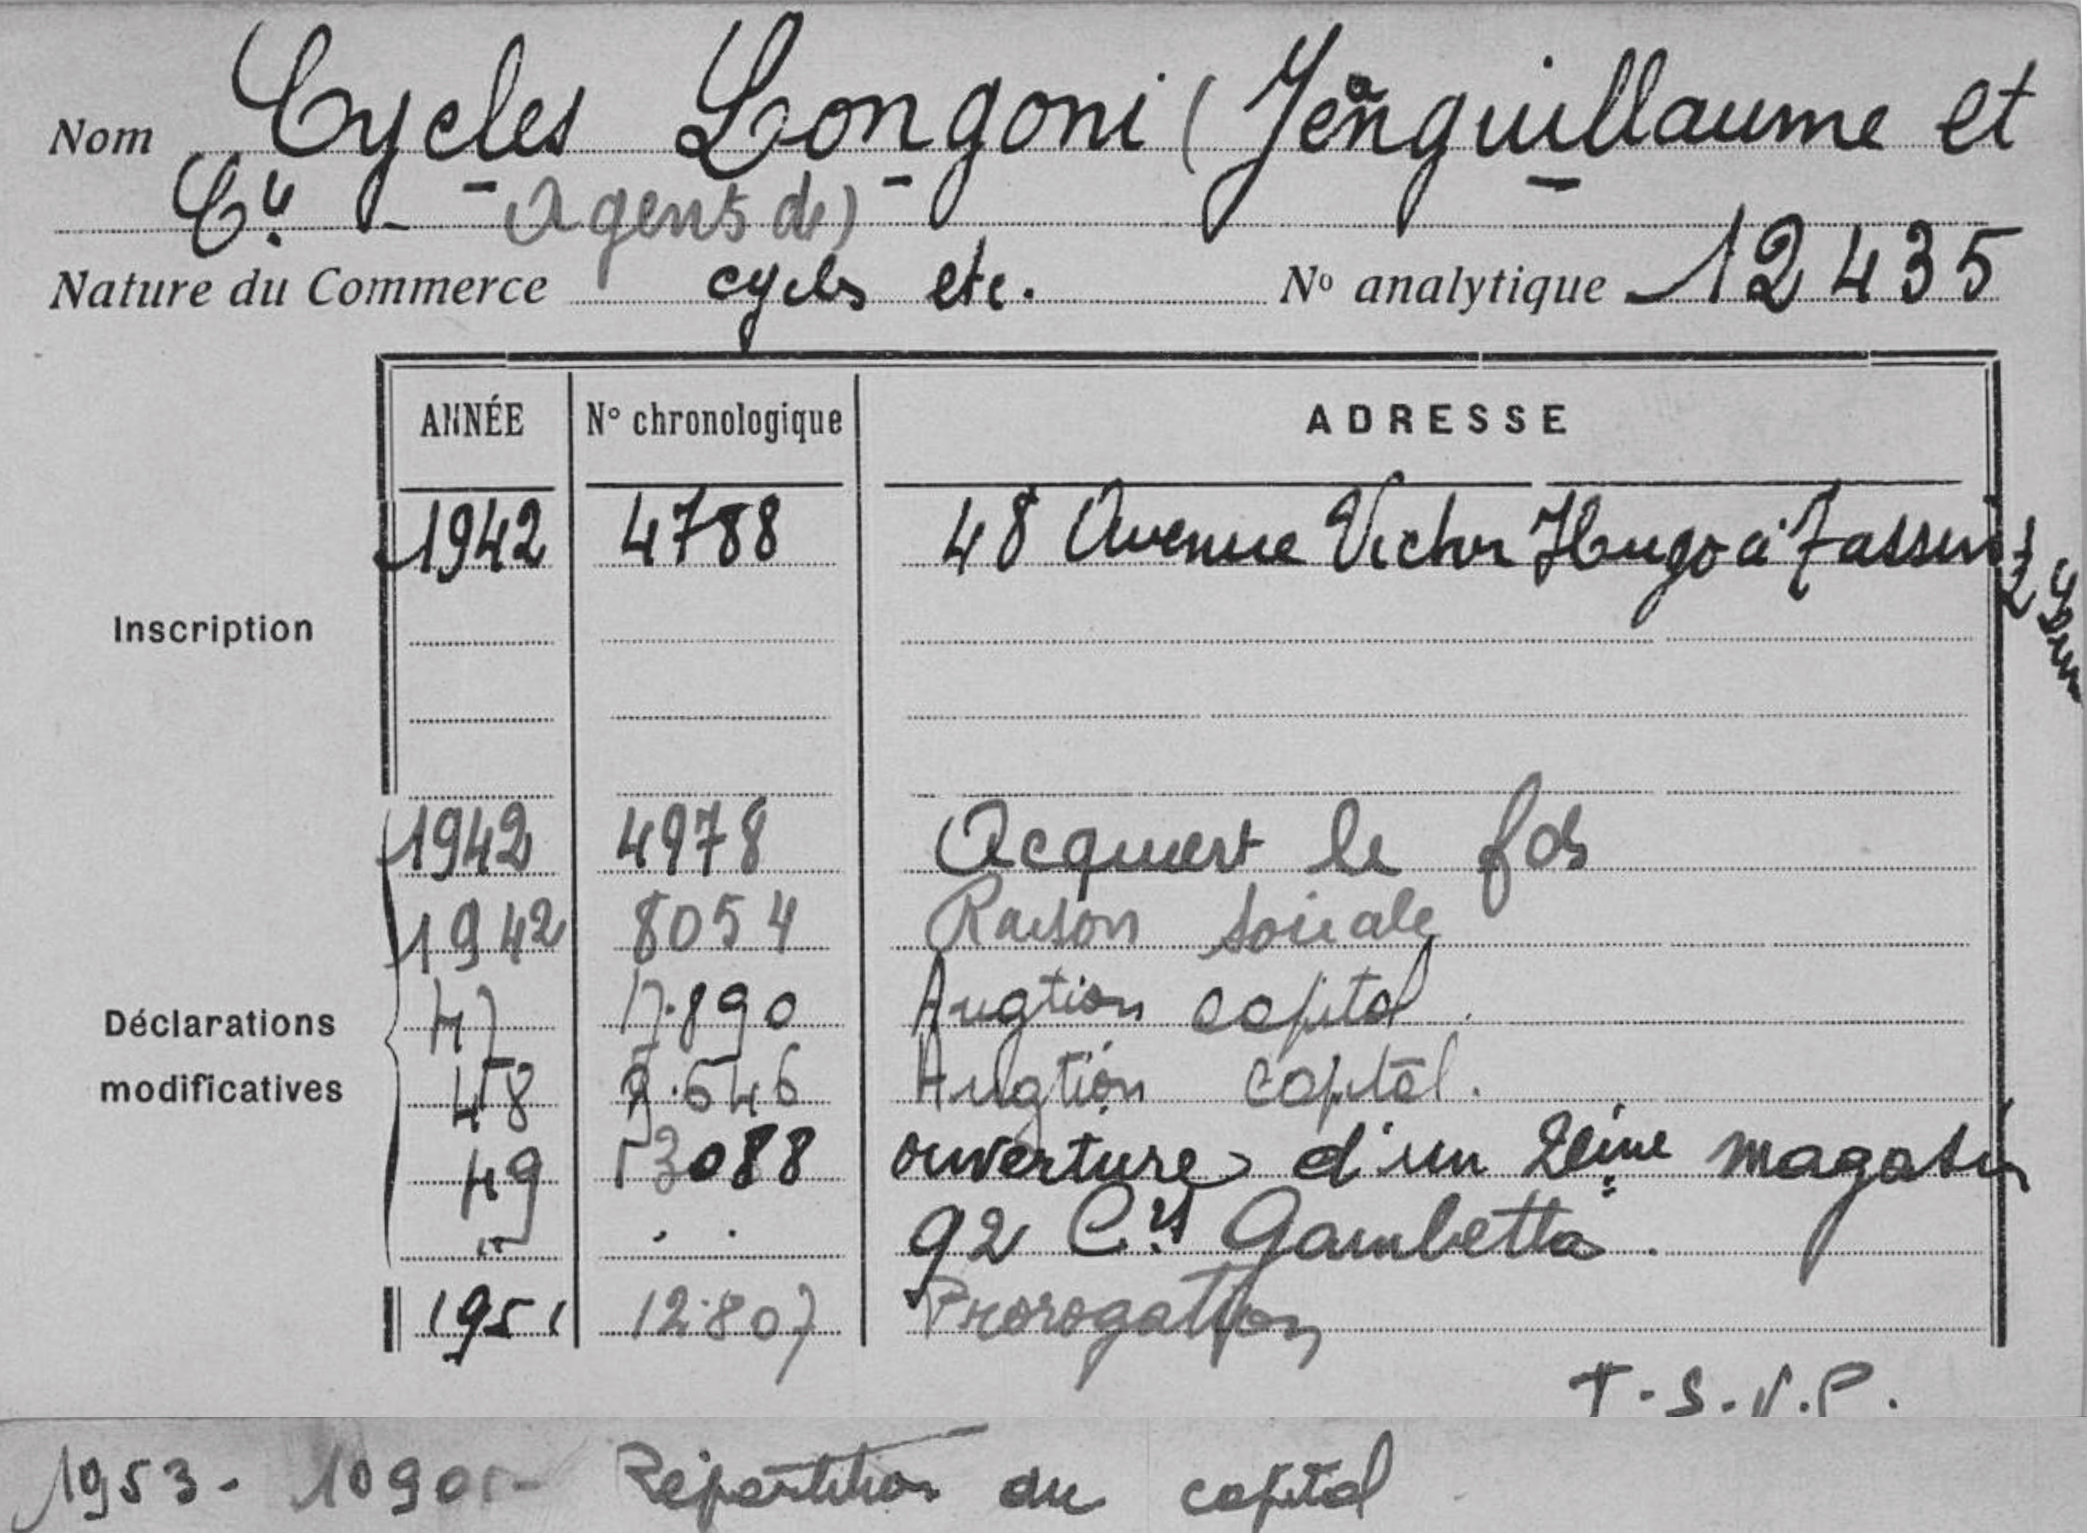 Nom Cycles Longoni (Jeanguillaume et
Cie (Agens de)
Nature du Commerce cycles etc. No analytique 12435
ANNÉE N° chronologique ADRESSE
1942 4788 48 Avenue Victor Hugo à Tassin
Inscription
1942 4978 Acquiert le fds
1942 8054 Raison sociale
47 17.890 Augtion capital.
Déclarations
48 9.646 Augtion capital.
modificatives
49 13088 ouverture d'un 2ème magasin
" . . 92 Crs Gambetta.
1951 12.807 Prorogation
T.S.V.P.
1953 - Répartition du capital